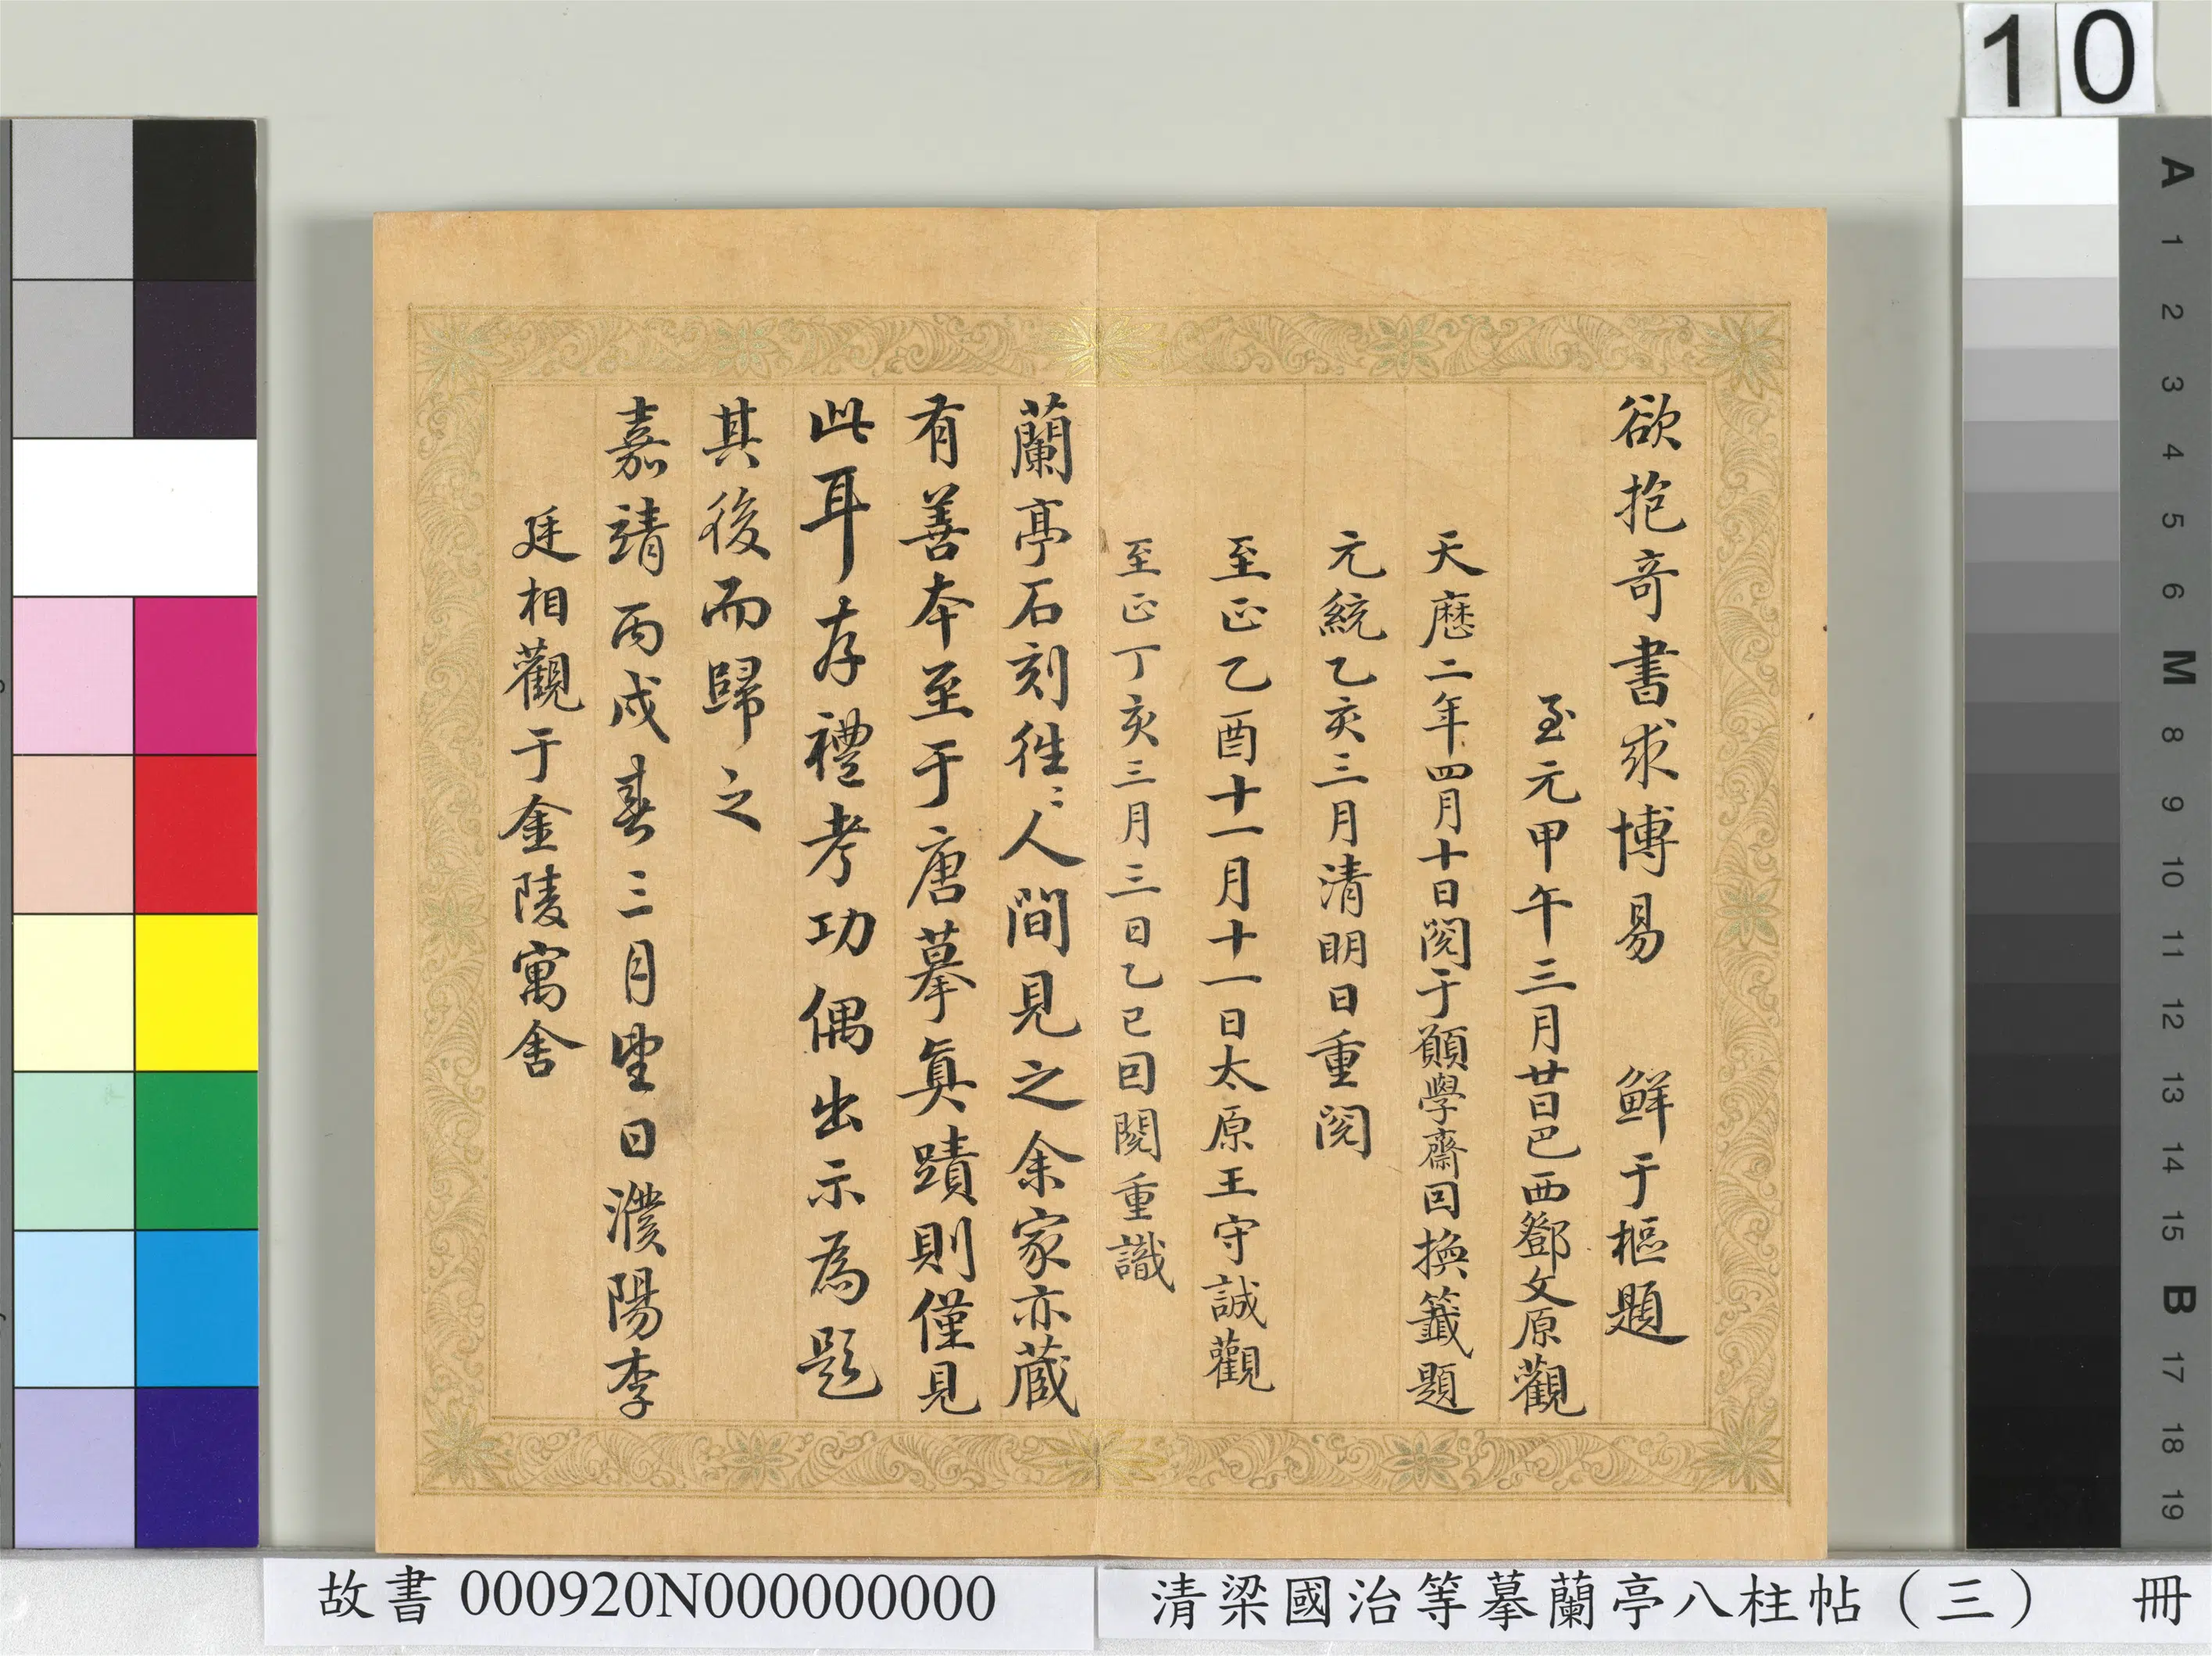 10
欲抱奇書求博易　鮮于樞題
至元甲午三月廿日巴西鄧文原觀
天歷二年四月十日閱于願學齋回換籤題
元統乙亥三月清明日重閱
至正乙酉十一月十一日太原王守誠觀
至正丁亥三月三日乙巳回閱重識
蘭亭石刻徃〻人間見之余家亦藏
有善本至于唐摹真蹟則僅見
此耳存禮考功偶出示為題
其後而歸之
嘉靖丙戌春三月望日濮陽李
廷相觀于金陵寓舍
A 1 2 3 4 5 6 M 8 9 10 11 12 13 14 15 B 17 18 19
故書 000920N000000000
清梁國治等摹蘭亭八柱帖（三）　冊